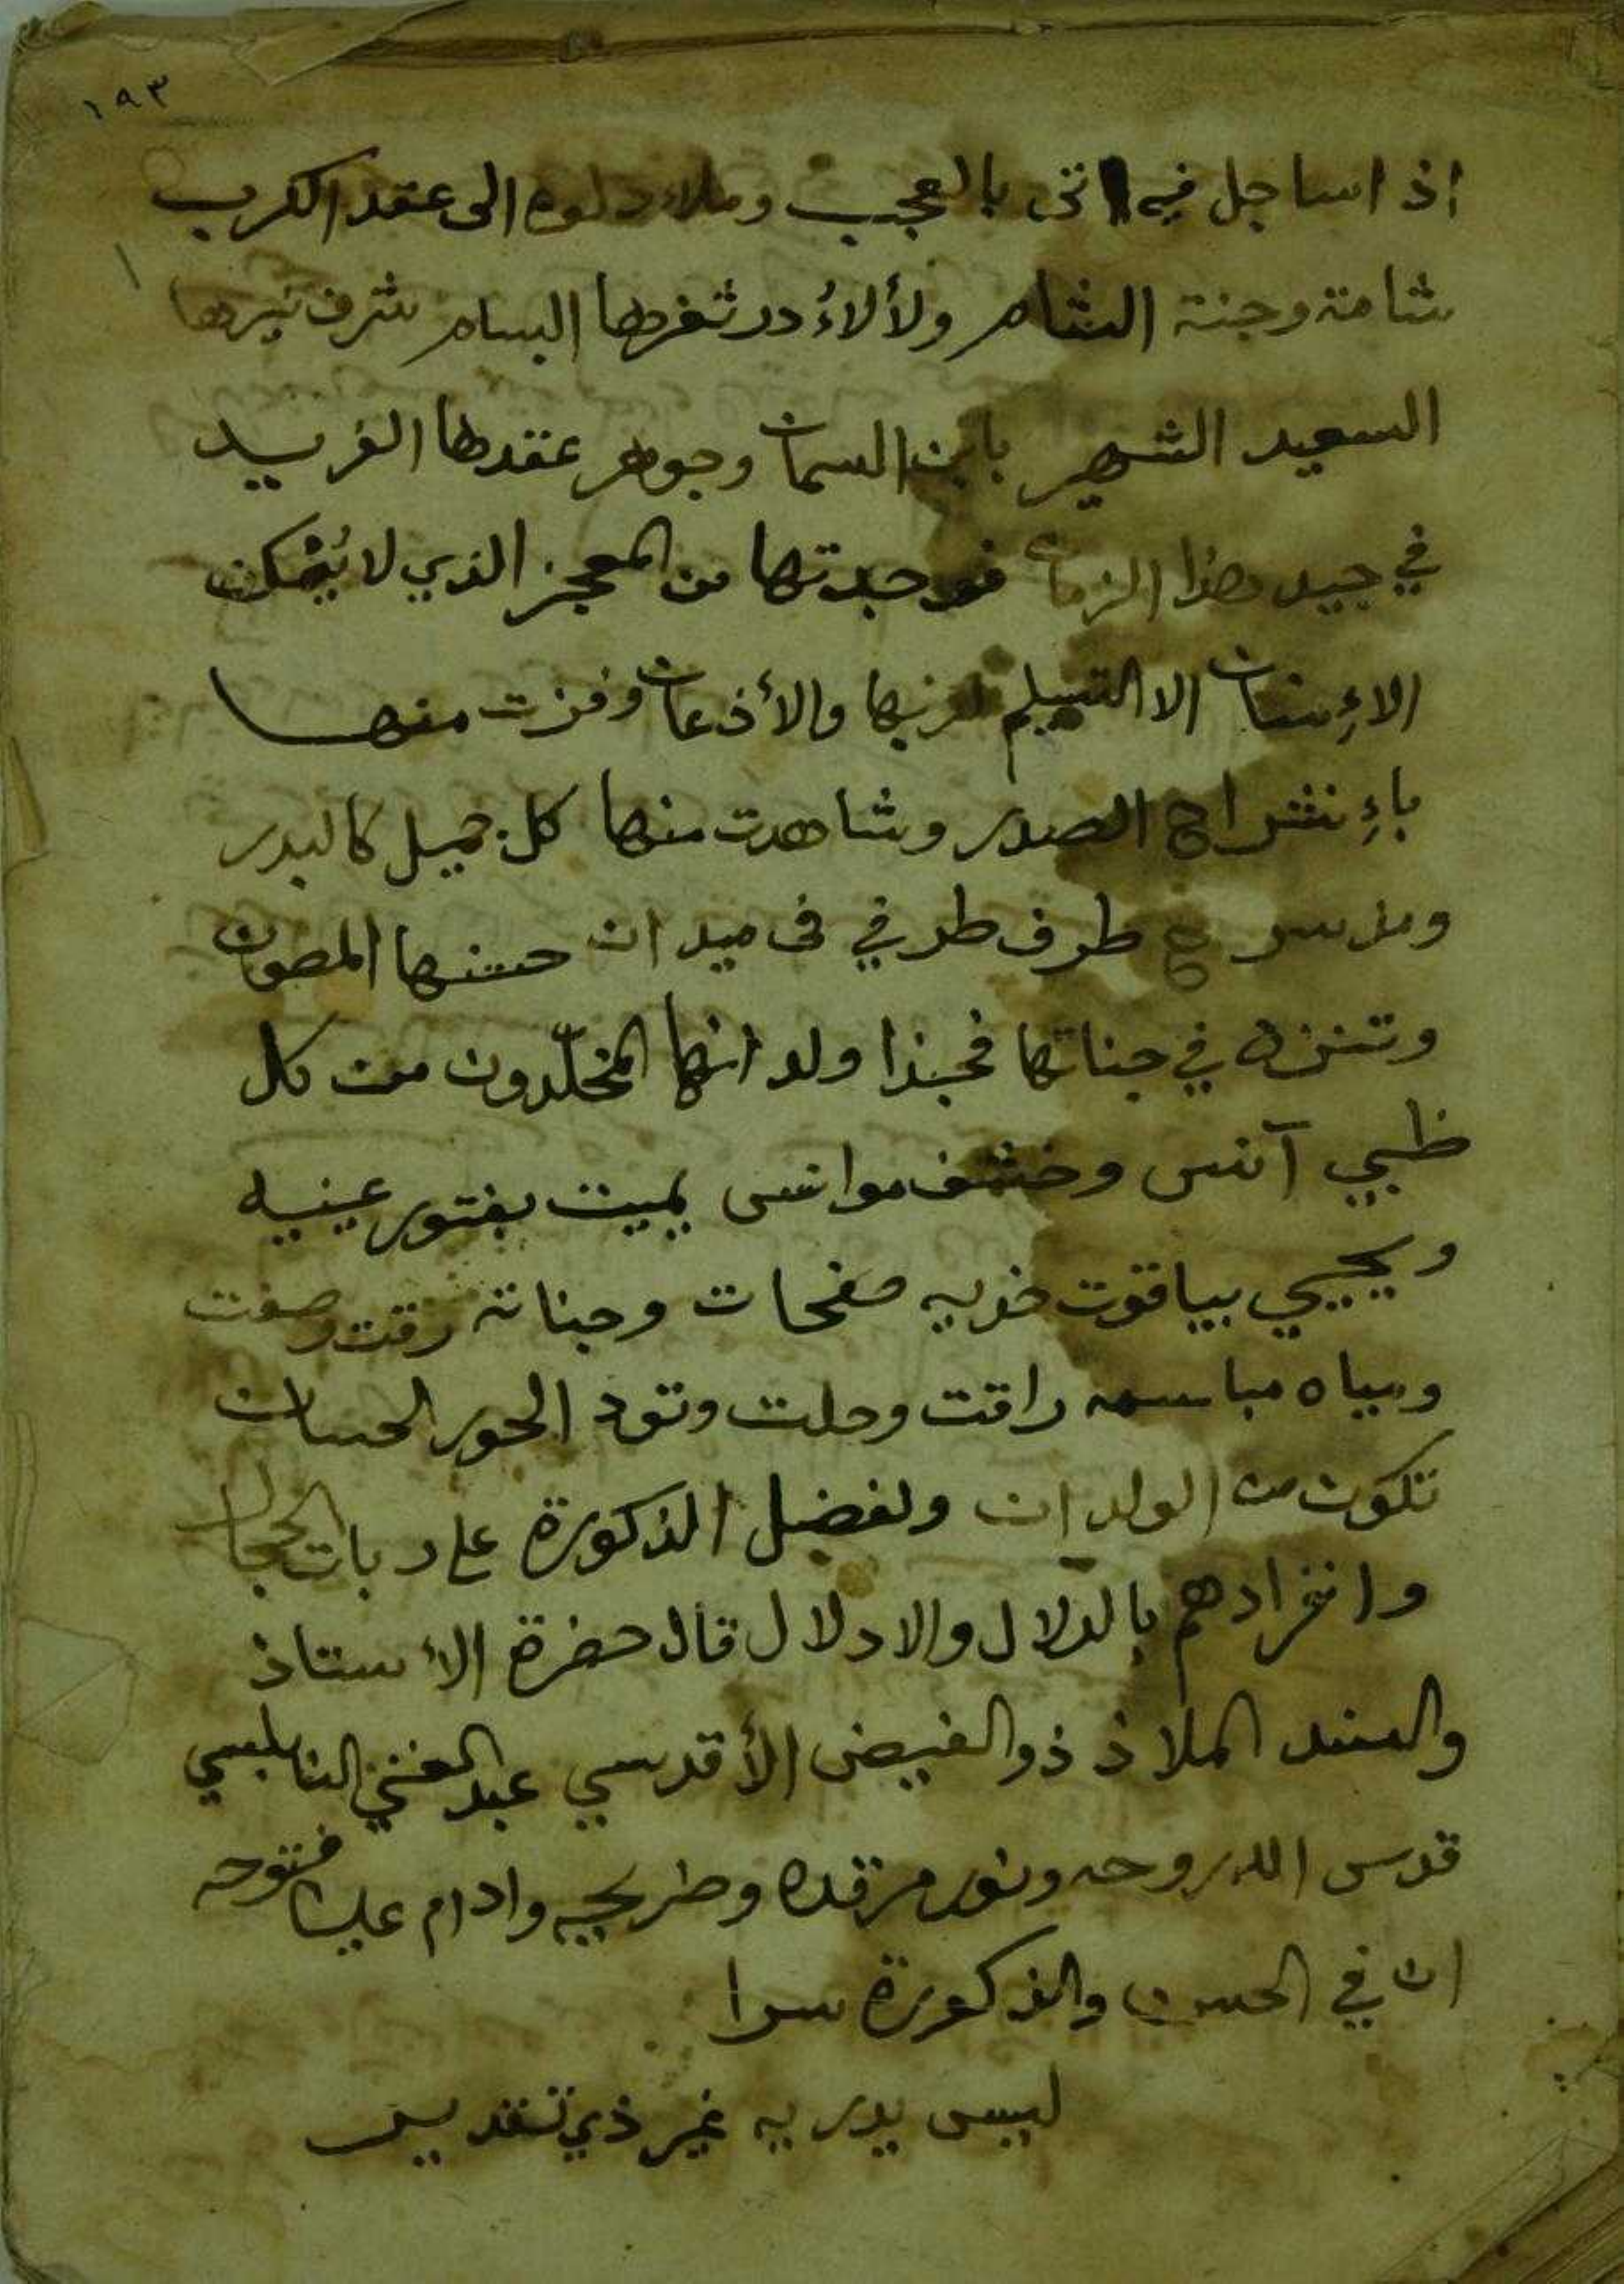 ١٩٣
اذ اساجل فيه اتى بالعجب وملاء دلوه الى عقد الكرب
شامة وجنة الشام ولألاءُ در ثغرها البسام شرف نيرها
السعيد الشهير بابن السمان وجوهر عقدها الفريد
في جيد هذا الزمان فوجدتها من المعجز الذي لا يُمْكن
الاءِنسان الا التسليم لربها والأذعان وفزت منها
باءِنشراح الصدر وشاهدت منها كل جميل كالبدر
ومذ سرح طرف طرفي فى ميدان حسنها المصون
وتنزه في جناتها فحبذا ولدانها المخلّدون من كل
ظبي آنس وخشف موانس يميت بفتور عينيه
ويحيي بياقوت خديه صفحات وجناته رقت وصفت
ومياه مباسمه راقت وحلت وتود الحور الحسان
تكون من الولدان ولفضل الذكورة على ربات الحجال
وانفرادهم بالدلال والادلال قال حضرة الأستاذ
والسند الملاذ ذو الفيض الأقدسي عبد الغني النابلسي
قدس الله روحه ونور مرقده وضريحه وادام علينا فتوحه
ان في الحسن والذكورة سرا
ليس يدريه غير ذي تقديس